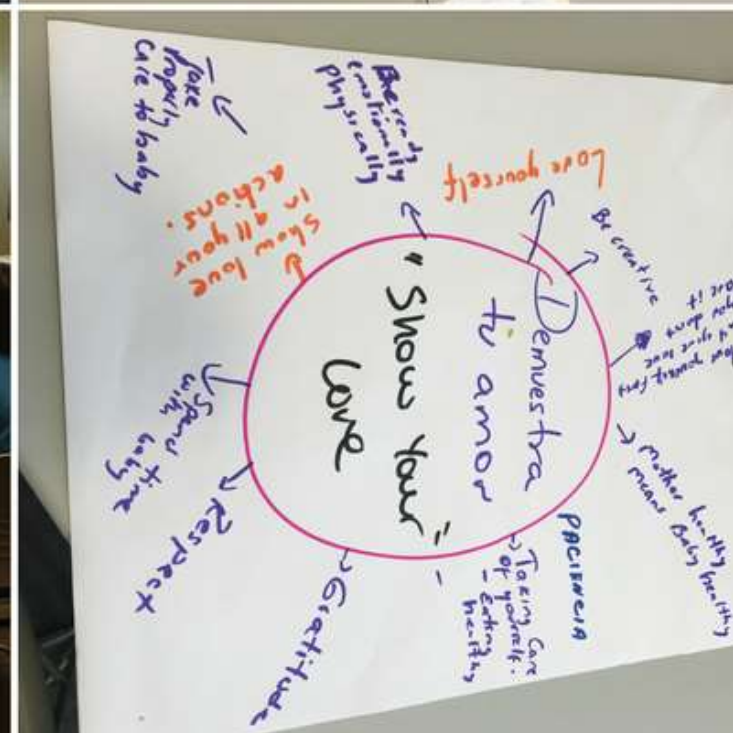 Demuestra
tu amor
"Show Your"
Love
Love yourself
Be creative
Mother healthy
means Baby healthy
PACIENCIA
Taking Care
of yourself.
- Eating
healthy
Gratitude
Respect
Spend time
with baby
Show love
in all your
actions.
- Take
Properly
Care to baby
Be ready
emotionally
physically